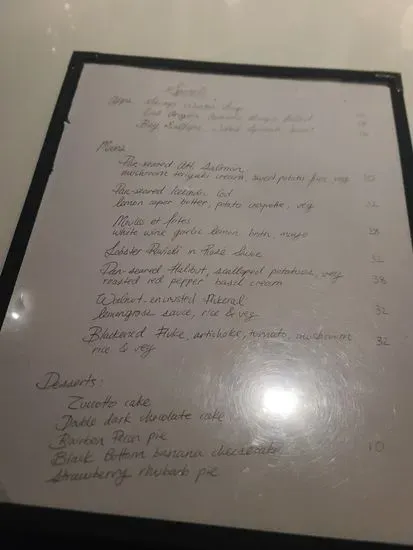 Specials
Apps
Mains
Pan-seared Atl Salmon,
mushroom teriyaki cream, sweet potato fries, veg
Pan-seared Icelandic Cod
lemon caper butter, potato croquette, veg 32
Moules et frites
white wine garlic lemon broth, mayo 28
Lobster Ravioli in Rosé Sauce 32
Pan-seared Halibut, scalloped potatoes, veg
roasted red pepper basil cream 38
Walnut-encrusted
lemongrass sauce, rice & veg 32
Blackened Fluke, artichoke, tomato, mushroom 32
rice & veg
Desserts:
Zuccotto cake
Double dark chocolate cake
Bourbon Pecan pie
Black Bottom banana cheesecake 10
Strawberry rhubarb pie